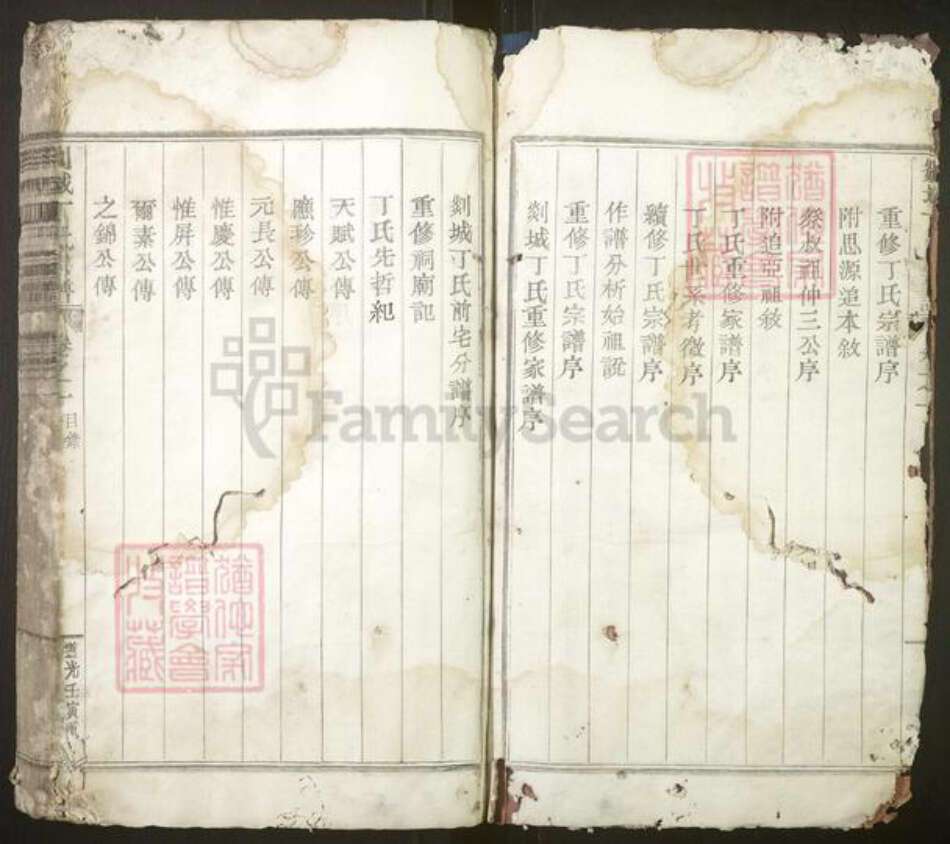 重修丁氏宗譜序
附思源追本敘
叅政祖仲三公序
附追亞祖敘
丁氏重修家譜序
丁氏世系考徵序
續修丁氏宗譜序
作譜分析始祖說
重修丁氏宗譜序
剡城丁氏重修家譜序
剡城丁氏前宅分譜序
重修祠廟記
丁氏先哲紀
天賦公傳
應珍公傳
元長公傳
惟慶公傳
惟屏公傳
爾素公傳
之錦公傳
目錄
道光壬寅重
猶他家譜學會珍藏
猶他家譜學會珍藏
FamilySearch